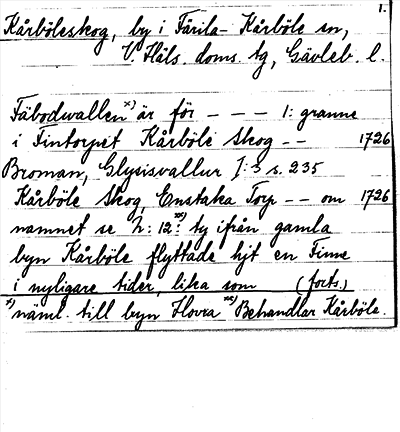 1.
Kårböleskog, by i Färila-Kårböle sn,
V. Häls. doms. tg, Gävleb. l.
Fäbodwallen x) är för - - - 1: granne
i Fintorpet Kårböle Skog - - 1726
Broman, Glysisvallur I: 3 s. 235
Kårböle Skog, Enstaka Torp - - om 1726
namnet se N: 12. xx) ty ifrån gamla
byn Kårböle flyttade hjt en Finne
i nyligare tider, lika som (forts.)
x) näml. till byn Hovra xx) Behandlar Kårböle.